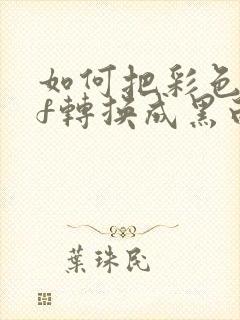 如何把彩色
f轉換成黑
葉珠民